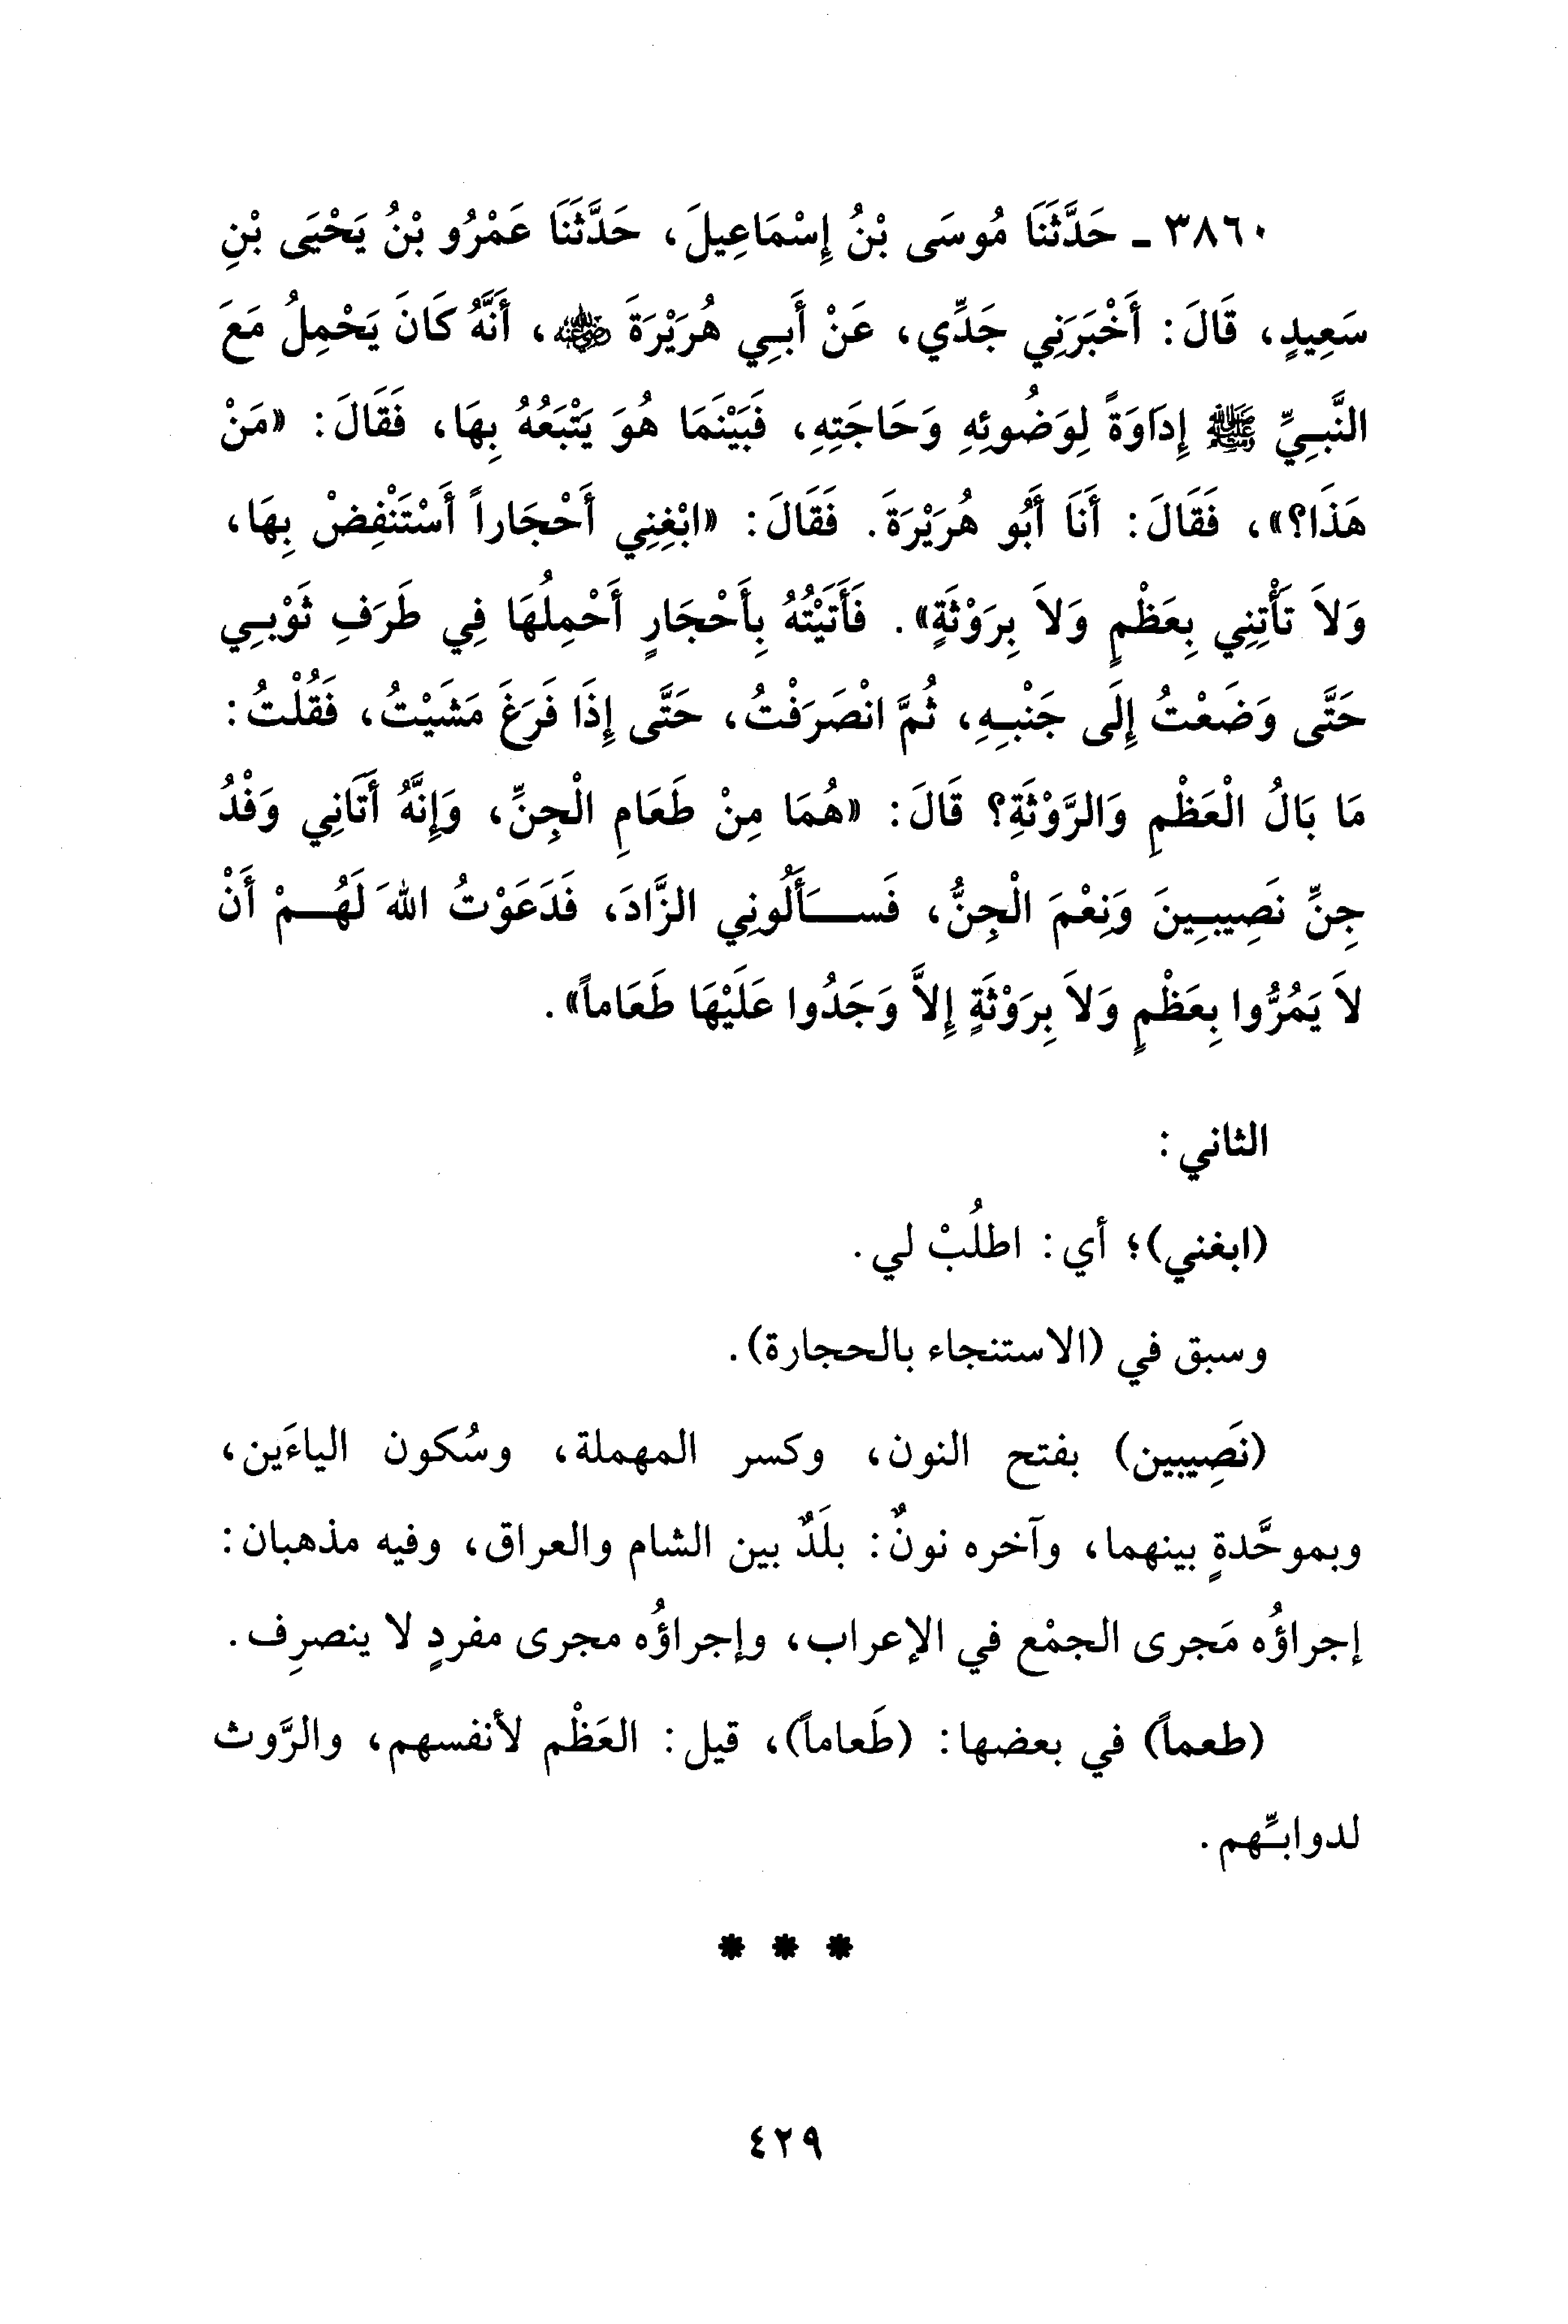 ٣٨٦٠ ـ حَدَّثَنَا مُوسَى بْنُ إِسْمَاعِيلَ، حَدَّثَنَا عَمْرُو بْنُ يَحْيَى بْنِ
سَعِيدٍ، قَالَ: أَخْبَرَنِي جَدِّي، عَنْ أَبِي هُرَيْرَةَ رضي الله عنه، أَنَّهُ كَانَ يَحْمِلُ مَعَ
النَّبِيِّ ﷺ إِدَاوَةً لِوَضُوئِهِ وَحَاجَتِهِ، فَبَيْنَمَا هُوَ يَتْبَعُهُ بِهَا، فَقَالَ: «مَنْ
هَذَا؟»، فَقَالَ: أَنَا أَبُو هُرَيْرَةَ. فَقَالَ: «ابْغِنِي أَحْجَاراً أَسْتَنْفِضْ بِهَا،
وَلاَ تَأْتِنِي بِعَظْمٍ وَلاَ بِرَوْثَةٍ». فَأَتَيْتُهُ بِأَحْجَارٍ أَحْمِلُهَا فِي طَرَفِ ثَوْبِي
حَتَّى وَضَعْتُ إِلَى جَنْبِهِ، ثُمَّ انْصَرَفْتُ، حَتَّى إِذَا فَرَغَ مَشَيْتُ، فَقُلْتُ:
مَا بَالُ الْعَظْمِ وَالرَّوْثَةِ؟ قَالَ: «هُمَا مِنْ طَعَامِ الْجِنِّ، وَإِنَّهُ أَتَانِي وَفْدُ
جِنِّ نَصِيبِينَ وَنِعْمَ الْجِنُّ، فَسَأَلُونِي الزَّادَ، فَدَعَوْتُ اللهَ لَهُمْ أَنْ
لاَ يَمُرُّوا بِعَظْمٍ وَلاَ بِرَوْثَةٍ إِلاَّ وَجَدُوا عَلَيْهَا طَعَاماً».
الثاني:
(ابغني)؛ أي: اطلُبْ لي.
وسبق في (الاستنجاء بالحجارة).
(نَصِيبين) بفتح النون، وكسر المهملة، وسُكون الياءَين،
وبموحَّدةٍ بينهما، وآخره نونٌ: بلَدٌ بين الشام والعراق، وفيه مذهبان:
إجراؤُه مَجرى الجمْع في الإعراب، وإجراؤُه مجرى مفردٍ لا ينصرِف.
(طعماً) في بعضها: (طَعاماً)، قيل: العَظْم لأنفسهم، والرَّوث
لدوابِّهم.
* * *
٤٢٩